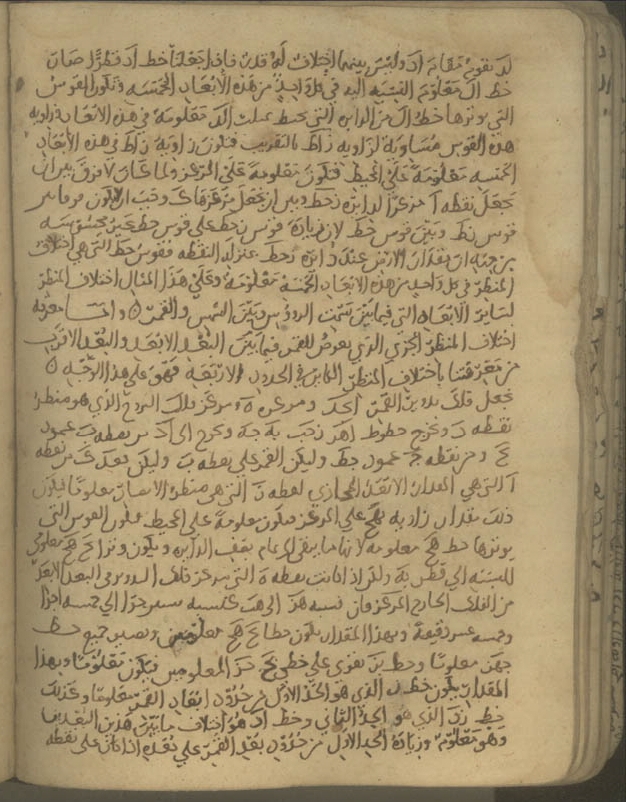 لا تقوم مقام اد وليس بينهما اختلاف له قدر فاذا جعلنا خط اد قطرا صار
خط ال معلوم النسبة اليه في كل واحد من هذه الابعاد الخمسة وتكون القوس
التي يوترها خط ال من الدايره التي تحيط بمثلث الد معلومة في هذه الابعاد وزاويه
هذه القوس مساوية لزاويه زاط بالتقريب فتكون زاوية زاط في هذه الابعاد
الخمسه معلومة على المحيط فتكون معلومة على المركز ولما كان لا فرق بين ان
نجعل نقطه ا مركز الدايره زحط وبين ان نجعل مركزها ك وجب ان لا يكون فرق بين
قوس زط وبين قوس خط لان زيادة قوس زحط على قوس حط غير محسوسه
من جهة ان مقدار الارض عند دايره زحط بمنزله النقطه فقوس حط التي هي اختلاف
المنظر في كل واحد من هذه الابعاد الخمسة معلومة وعلى هذا المثال اختلاف المنظر
لساير الابعاد التي فيما بين سمت الرووس وبين الشمس والقمر ٥ واما معرفة
اختلاف المنظر الجزي الذي يعرض للقمر فيما بين البعد الابعد والبعد الاقرب
من معرفتنا باختلاف المنظر الكاين في الحدود الاربعة فهو على هذا الوجه ٥
نجعل فلك تدوير القمر ابجد ومركزه ه ومركز فلك البروج الذي هو منظر
نقطه ز ونخرج خطوط اهز زحب به جه ونخرج الى اد من نقطه ب عمود
بح ومن نقطه ج عمود جط وليكن القمر على نقطه ب وليكن بعده عن نقطه
ا التي هي البعد الابعد المجازي لنقطه ز التي هي منظر الابصار معلوما فيكون
ذلك مقدار زاويه بهح على المركز فتكون معلومة على المحيط فتكون القوس التي
يوترها خط هح معلومة لانها ما يبقى الى تمام نصف الدايره ويكون وترا بح هح معلومي
النسبه الى قطر به ولكن اذا كانت نقطه ه التي مركز فلك التدوير في البعد الابعد
من الفلك الخارج المركز فان نسبه هز الى هب كنسبه ستين جزوا الى خمسه اجزا
وخمسه عشر دقيقة وبهذا المقدار يكون خطا بح هح معلومين ويصير جميع خط
حهز معلوما وخط بز يقوى على خطي بح حز المعلومين فيكون معلوما وبهذا
المقدار يكون خط زا الذي هو الحد الاول من حدود ابعاد القمر معلوما وكذلك
خط زد الذي هو الحد الثاني وخط اد هو اختلاف ما بين هذين البعدين
وهو معلوم وزيادة الحد الاول من حدود بعد القمر على بعده اذا كان على نقطه